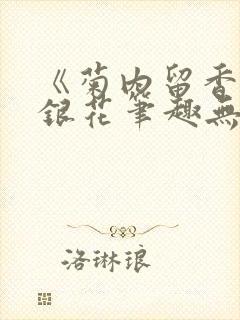 《菊内留香
銀花筆趣無
洛琳琅